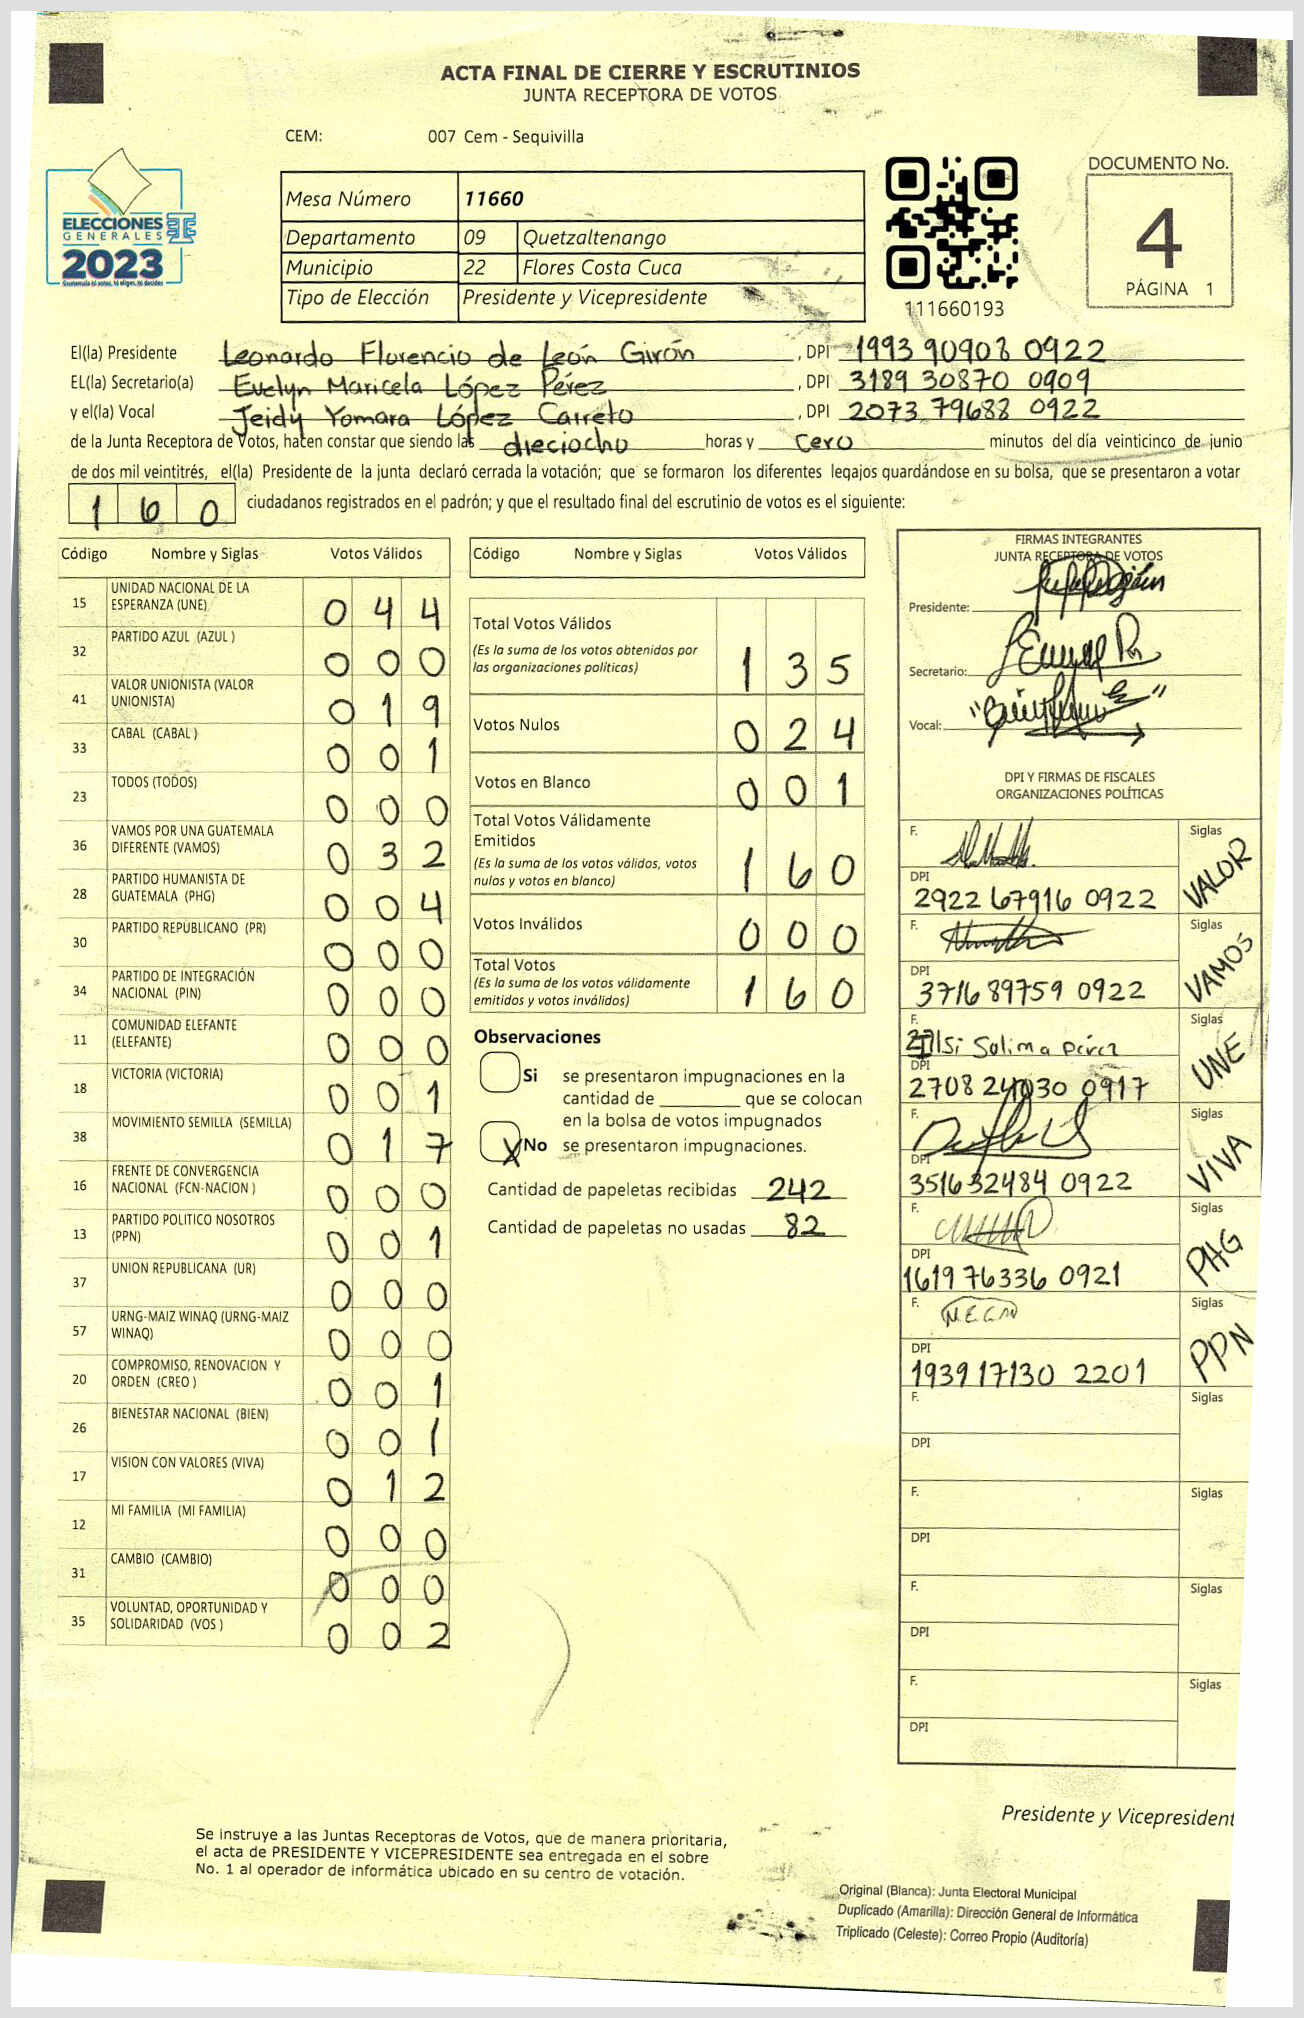 ACTA FINAL DE CIERRE Y ESCRUTINIOS
JUNTA RECEPTORA DE VOTOS
CEM: 007 Cem - Sequivilla
ELECCIONES
GENERALES
2023
Mesa Número 11660
Departamento 09 Quetzaltenango
Municipio 22 Flores Costa Cuca
Tipo de Elección Presidente y Vicepresidente
111660193
DOCUMENTO No.
4
PÁGINA 1
El(la) Presidente Leonardo Florencio de León Girón , DPI 1993 90908 0922
EL(la) Secretario(a) Evelyn Maricela López Pérez , DPI 3189 30870 0909
y el(la) Vocal Jeidy Yomara López Carreto , DPI 2073 79688 0922
de la Junta Receptora de Votos, hacen constar que siendo las dieciocho horas y cero minutos del día veinticinco de junio
de dos mil veintitrés, el(la) Presidente de la junta declaró cerrada la votación; que se formaron los diferentes legajos guardándose en su bolsa, que se presentaron a votar
160 ciudadanos registrados en el padrón; y que el resultado final del escrutinio de votos es el siguiente:
Código Nombre y Siglas Votos Válidos
15 UNIDAD NACIONAL DE LA ESPERANZA (UNE) 0 4 4
32 PARTIDO AZUL (AZUL ) 0 0 0
41 VALOR UNIONISTA (VALOR UNIONISTA) 0 1 9
33 CABAL (CABAL ) 0 0 1
23 TODOS (TODOS) 0 0 0
36 VAMOS POR UNA GUATEMALA DIFERENTE (VAMOS) 0 3 2
28 PARTIDO HUMANISTA DE GUATEMALA (PHG) 0 0 4
30 PARTIDO REPUBLICANO (PR) 0 0 0
34 PARTIDO DE INTEGRACIÓN NACIONAL (PIN) 0 0 0
11 COMUNIDAD ELEFANTE (ELEFANTE) 0 0 0
18 VICTORIA (VICTORIA) 0 0 1
38 MOVIMIENTO SEMILLA (SEMILLA) 0 1 7
16 FRENTE DE CONVERGENCIA NACIONAL (FCN-NACION ) 0 0 0
13 PARTIDO POLITICO NOSOTROS (PPN) 0 0 1
37 UNION REPUBLICANA (UR) 0 0 0
57 URNG-MAIZ WINAQ (URNG-MAIZ WINAQ) 0 0 0
20 COMPROMISO, RENOVACION Y ORDEN (CREO ) 0 0 1
26 BIENESTAR NACIONAL (BIEN) 0 0 1
17 VISION CON VALORES (VIVA) 0 1 2
12 MI FAMILIA (MI FAMILIA) 0 0 0
31 CAMBIO (CAMBIO) 0 0 0
35 VOLUNTAD, OPORTUNIDAD Y SOLIDARIDAD (VOS ) 0 0 2
Código Nombre y Siglas Votos Válidos
Total Votos Válidos
(Es la suma de los votos obtenidos por
las organizaciones políticas) 1 3 5
Votos Nulos 0 2 4
Votos en Blanco 0 0 1
Total Votos Válidamente
Emitidos
(Es la suma de los votos válidos, votos
nulos y votos en blanco) 1 6 0
Votos Inválidos 0 0 0
Total Votos
(Es la suma de los votos válidamente
emitidos y votos inválidos) 1 6 0
Observaciones
Si se presentaron impugnaciones en la
cantidad de ________ que se colocan
en la bolsa de votos impugnados
X No se presentaron impugnaciones.
Cantidad de papeletas recibidas 242
Cantidad de papeletas no usadas 82
FIRMAS INTEGRANTES
JUNTA RECEPTORA DE VOTOS
Presidente:
Secretario:
Vocal:
DPI Y FIRMAS DE FISCALES
ORGANIZACIONES POLÍTICAS
F. Siglas VALOR
DPI 2922 67916 0922
F. Siglas VAMOS
DPI 3716 89759 0922
F. Siglas UNE
DPI 2708 24030 0917
F. Siglas VIVA
DPI 3516 32484 0922
F. Siglas PHG
DPI 1619 76336 0921
F. Siglas PPN
DPI 1939 17130 2201
F. Siglas
DPI
F. Siglas
DPI
F. Siglas
DPI
F. Siglas
DPI
Presidente y Vicepresident
Se instruye a las Juntas Receptoras de Votos, que de manera prioritaria,
el acta de PRESIDENTE Y VICEPRESIDENTE sea entregada en el sobre
No. 1 al operador de informática ubicado en su centro de votación.
Original (Blanca): Junta Electoral Municipal
Duplicado (Amarilla): Dirección General de Informática
Triplicado (Celeste): Correo Propio (Auditoría)